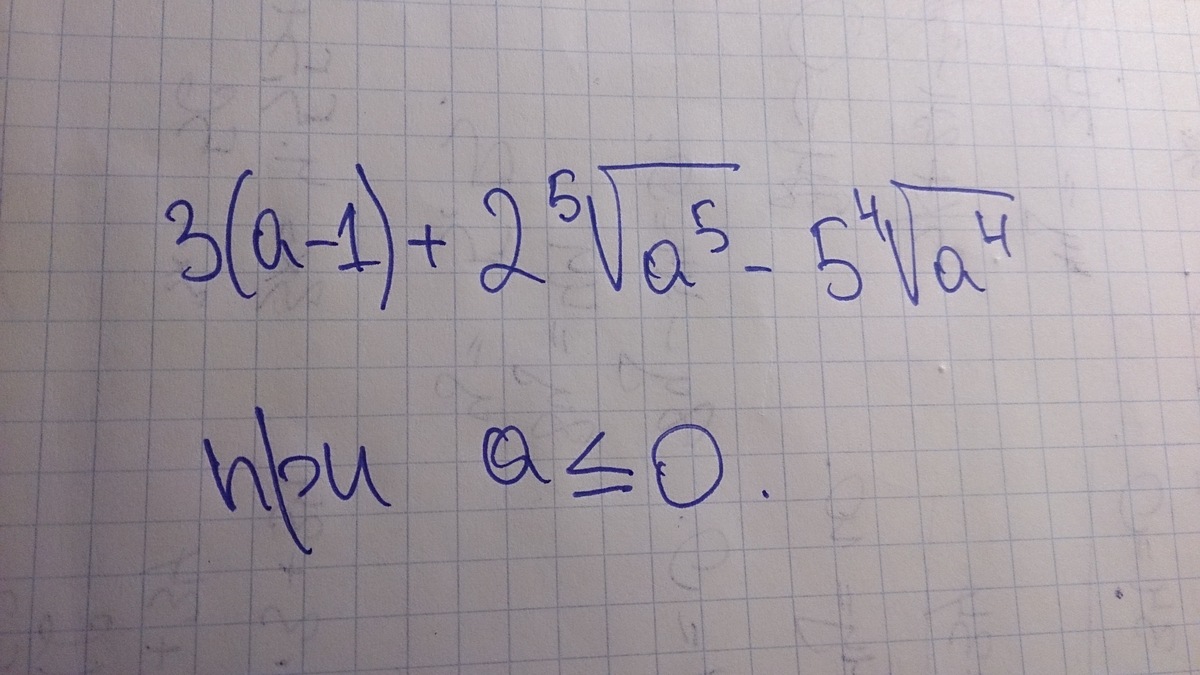 3(a-1)+ 2⁵√a⁵ - 5⁴√a⁴
при a ≤ 0.